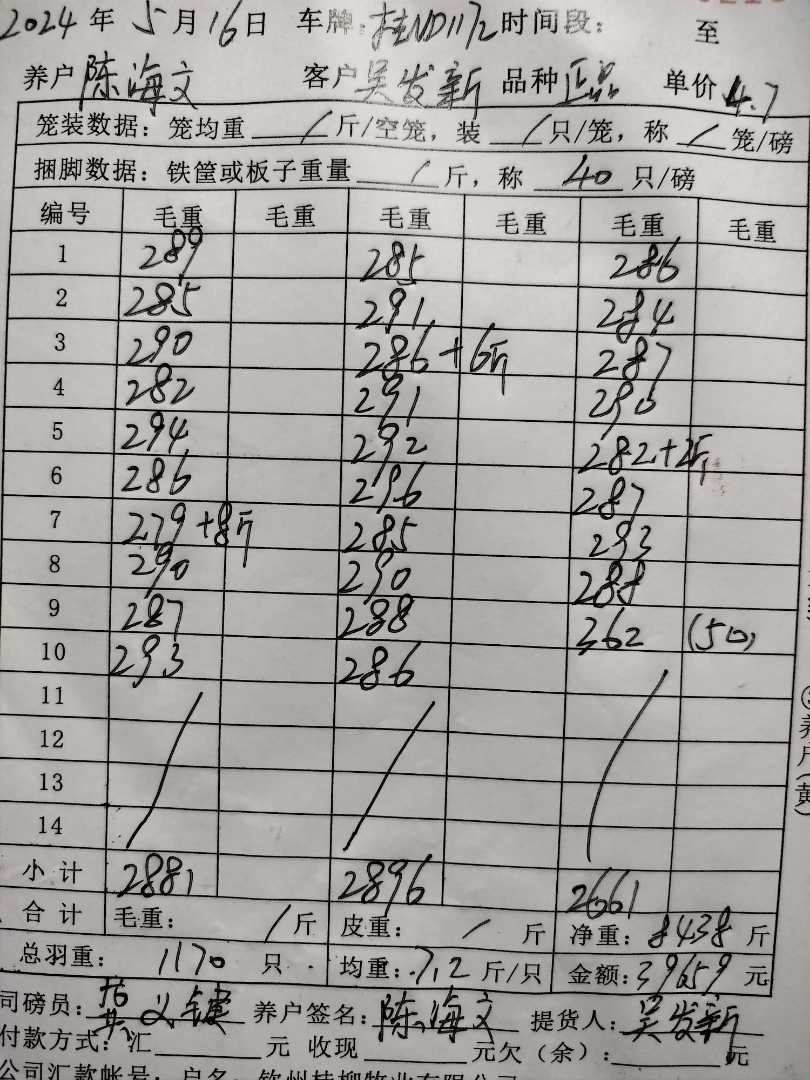 2024 年 5 月 16 日 车牌:桂ND1172 时间段: 至
养户 陈海文 客户 吴发新 品种 正品 单价 4.7
笼装数据:笼均重 / 斤/空笼,装 / 只/笼,称 / 笼/磅
捆脚数据:铁筐或板子重量 / 斤,称 40 只/磅
编号 毛重 毛重 毛重 毛重 毛重 毛重
1 289 285 286
2 285 291 284
3 290 286+6斤 287
4 282 291 290
5 294 292 282+2斤
6 286 296 287
7 279+8斤 285 293
8 290 290 288
9 287 288 362 (50)
10 293 286
11
12
13
14
小计 2881 2896 2661
合计 毛重: / 斤 皮重: / 斤 净重: 8438 斤
总羽重: 1170 只 均重: 7.2 斤/只 金额: 39659 元
司磅员: 义镇 养户签名: 陈海文 提货人: 吴发新
付款方式:汇 元 收现 元欠(余): 元
公司汇款帐号:户名:钦州桂柳牧业有限公司
养户(黄)